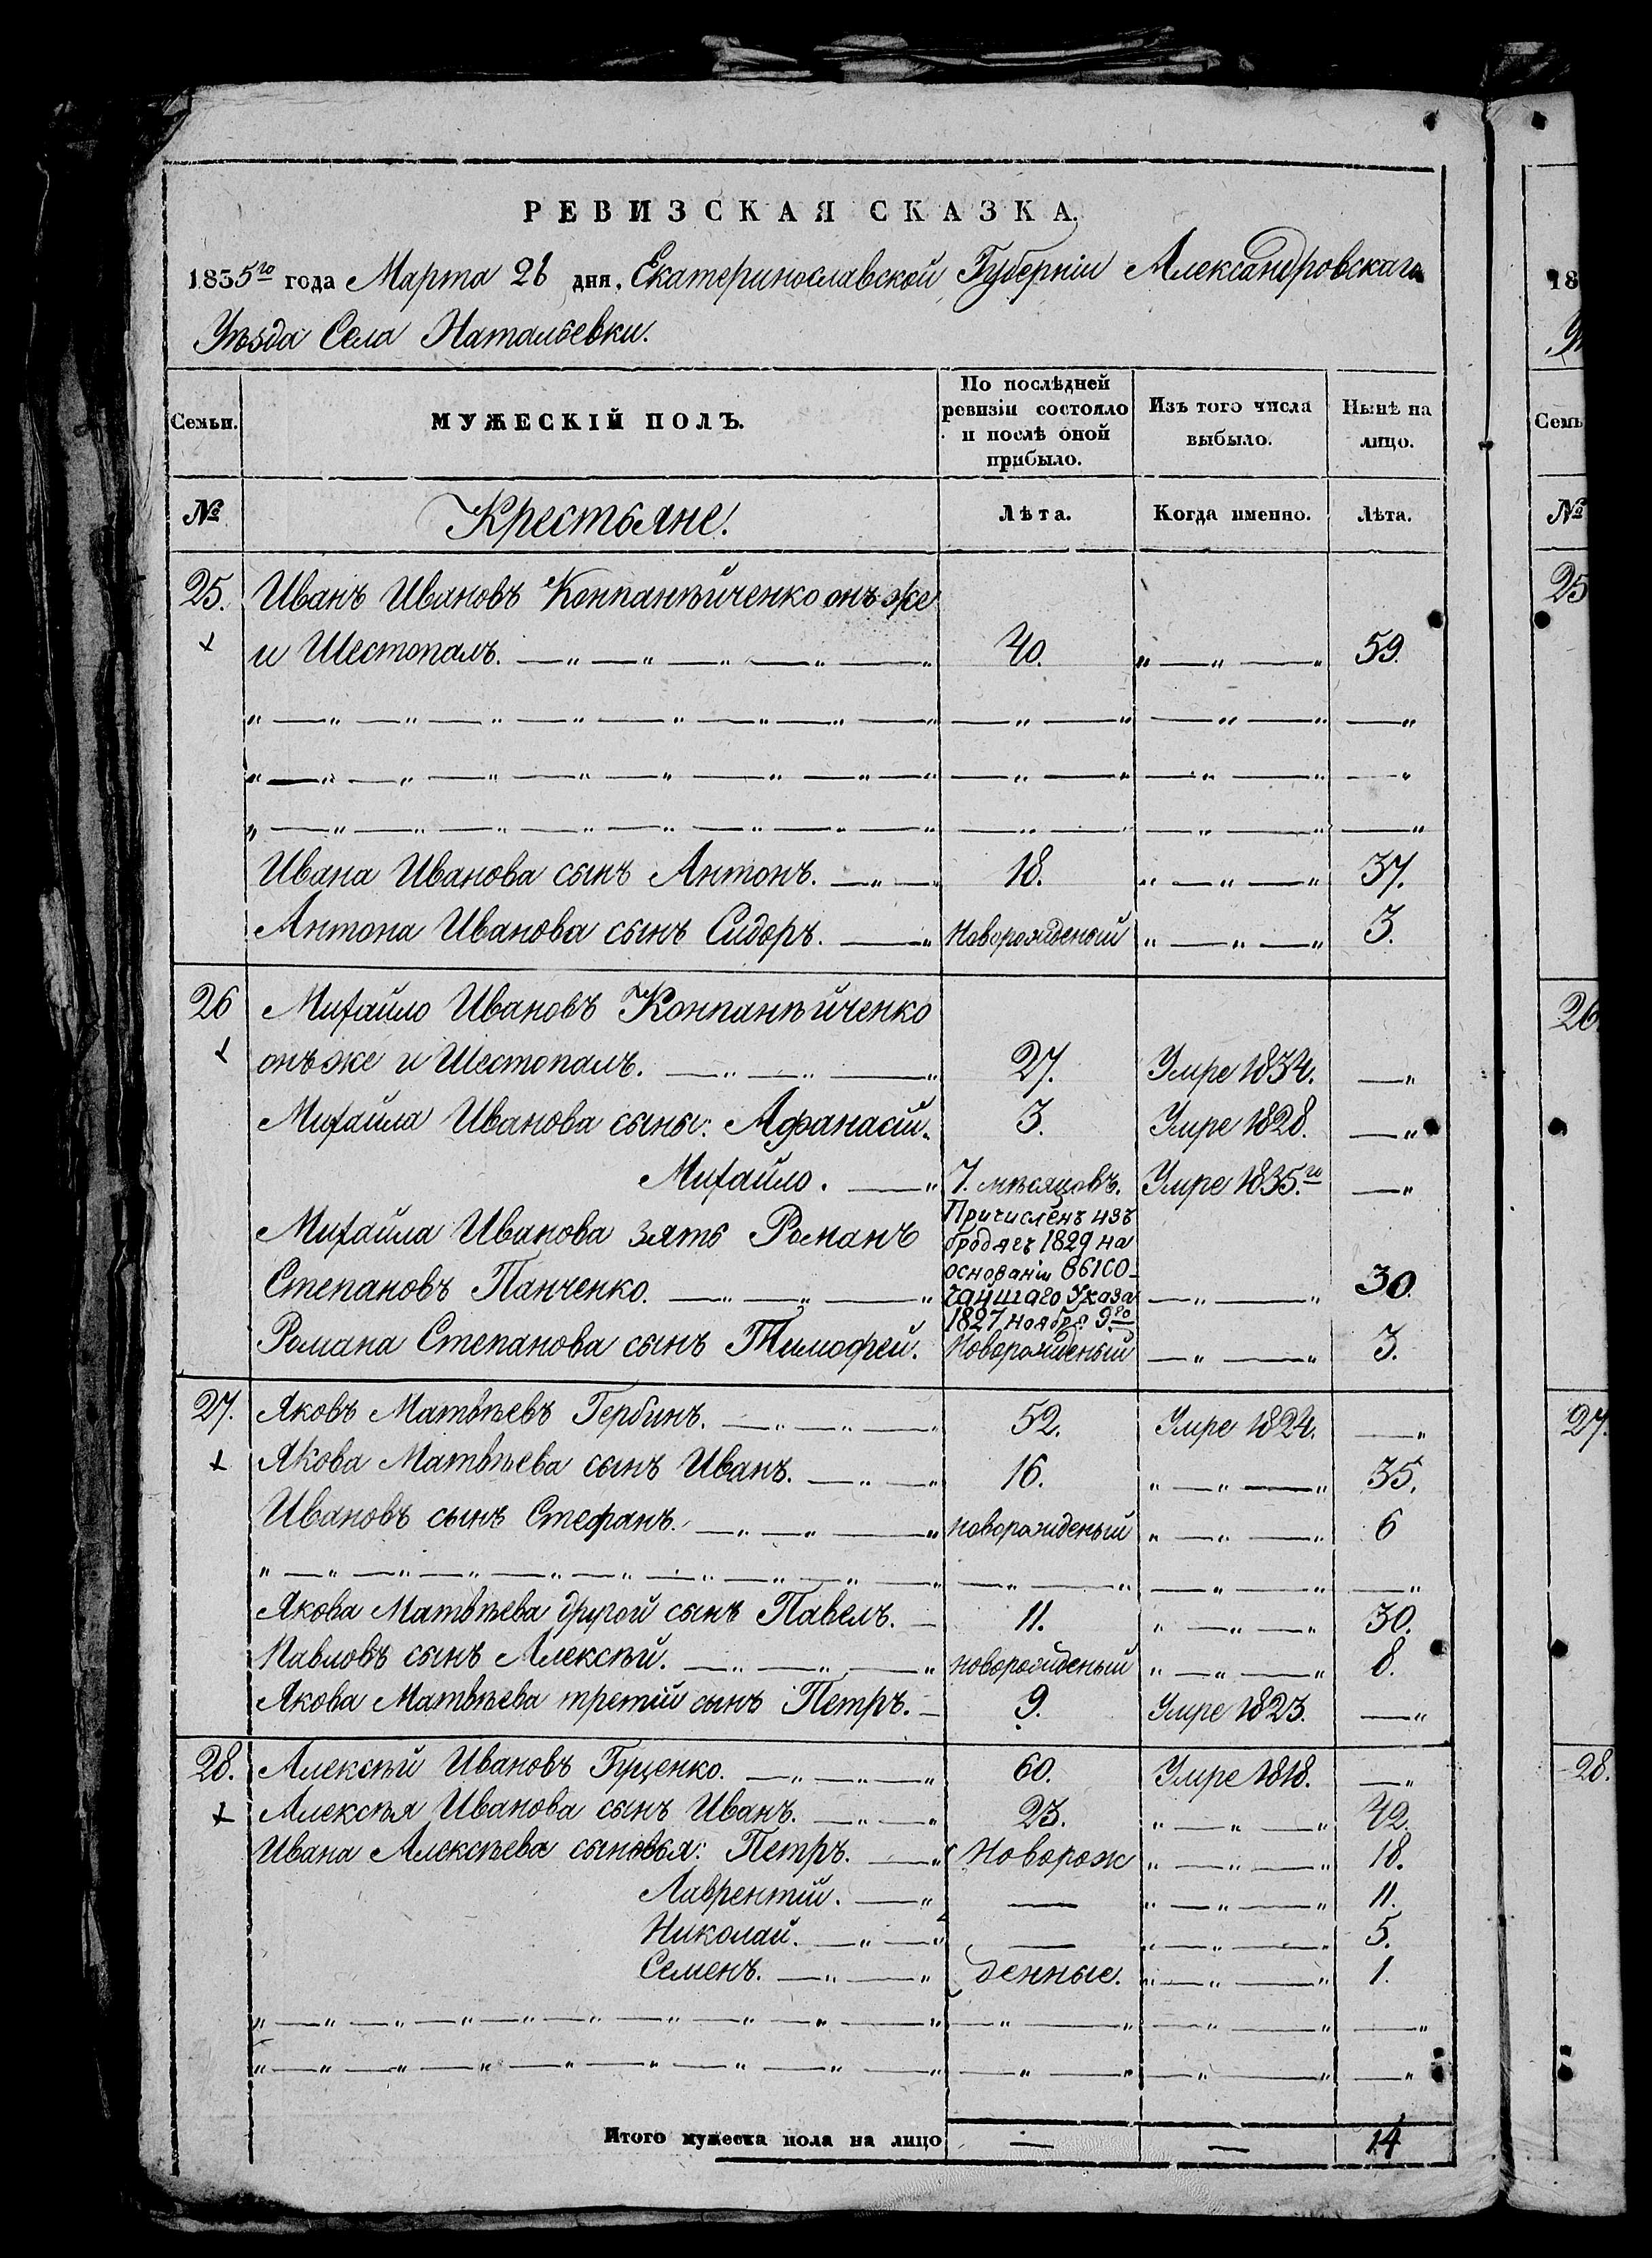 РЕВИЗСКАЯ СКАЗКА.
1835го года Марта 26 дня. Екатеринославской Губерніи Александровскаго
Уѣзда Села Натальевки.
Семьи. МУЖЕСКІЙ ПОЛЪ. По послѣдней ревизіи состояло и послѣ оной прибыло. Изъ того числа выбыло. Нынѣ на лицо.
№ Крестьяне. Лѣта. Когда именно. Лѣта.
25. Иванъ Ивановъ Конпанѣйченко онъ же
и Шестопалъ. 40. 59.
Ивана Иванова сынъ Антонъ. 18. 37.
Антона Иванова сынъ Сидоръ. Новорожденой 3.
26 Михайло Ивановъ Конпанѣйченко
онъ же и Шестопалъ. 27. Умре 1834.
Михайла Иванова сыны: Афанасій. 3. Умре 1828.
Михайло. 7. мѣсяцовъ. Умре 1835.го
Михайла Иванова зять Романъ
Степановъ Панченко. Причисленъ изъ бродягъ 1829 на основаніи Высочайшаго Указа 1827 ноября 9.го 30.
Романа Степанова сынъ Тимофей. Новорожденый 3.
27. Яковъ Матвѣевъ Гербинъ. 52. Умре 1824.
Якова Матвѣева сынъ Иванъ. 16. 35.
Ивановъ сынъ Стефанъ. новорожденый 6
Якова Матвѣева другой сынъ Павелъ. 11. 30.
Павловъ сынъ Алексѣй. новорожденый 8.
Якова Матвѣева третій сынъ Петръ. 9. Умре 1823.
28. Алексѣй Ивановъ Гуценко. 60. Умре 1818.
Алексѣя Иванова сынъ Иванъ. 23. 42.
Ивана Алексѣева сыновья: Петръ. Новорож 18.
Лаврентій. 11.
Николай. 5.
Семенъ. денные. 1.
Итого мужеска пола на лицо — — 14
18
Семь
№
25
26.
27.
28.